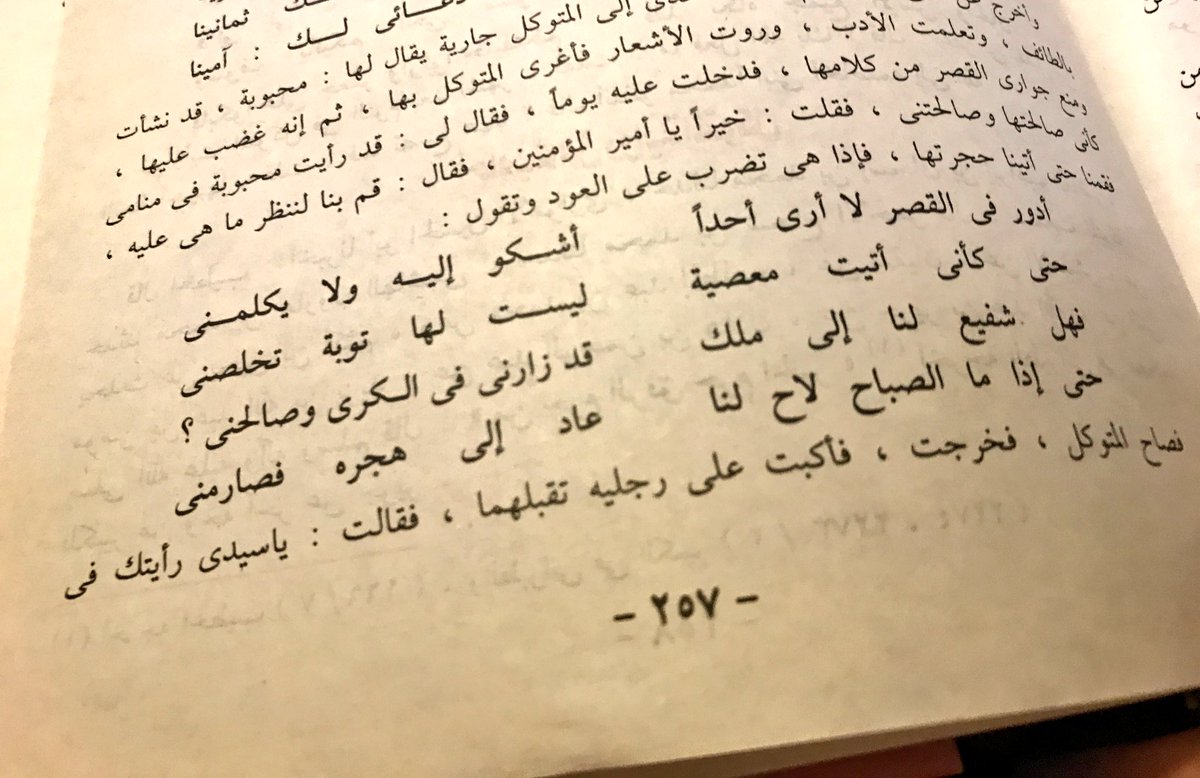 ثمانينا
دعائى لك : آمينا
وأخرج إلى المتوكل جارية يقال لها : محبوبة ، قد نشأت
بالطائف ، وتعلمت الأدب ، وروت الأشعار فأغرى المتوكل بها ، ثم إنه غضب عليها ،
ومنع جوارى القصر من كلامها ، فدخلت عليه يوماً ، فقال لى : قد رأيت محبوبة فى منامى
كأنى صالحتها وصالحتنى ، فقلت : خيراً يا أمير المؤمنين ، فقال : قم بنا لننظر ما هى عليه ،
فقمنا حتى أتينا حجرتها ، فإذا هى تضرب على العود وتقول :
أدور فى القصر لا أرى أحداً أشكو إليه ولا يكلمنى
حتى كأنى أتيت معصية ليست لها توبة تخلصنى
فهل شفيع لنا إلى ملك قد زارنى فى الكرى وصالحنى ؟
حتى إذا ما الصباح لاح لنا عاد إلى هجره فصارمنى
فصاح المتوكل ، فخرجت ، فأكبت على رجليه تقبلهما ، فقالت : ياسيدى رأيتك فى
- ٢٥٧ -